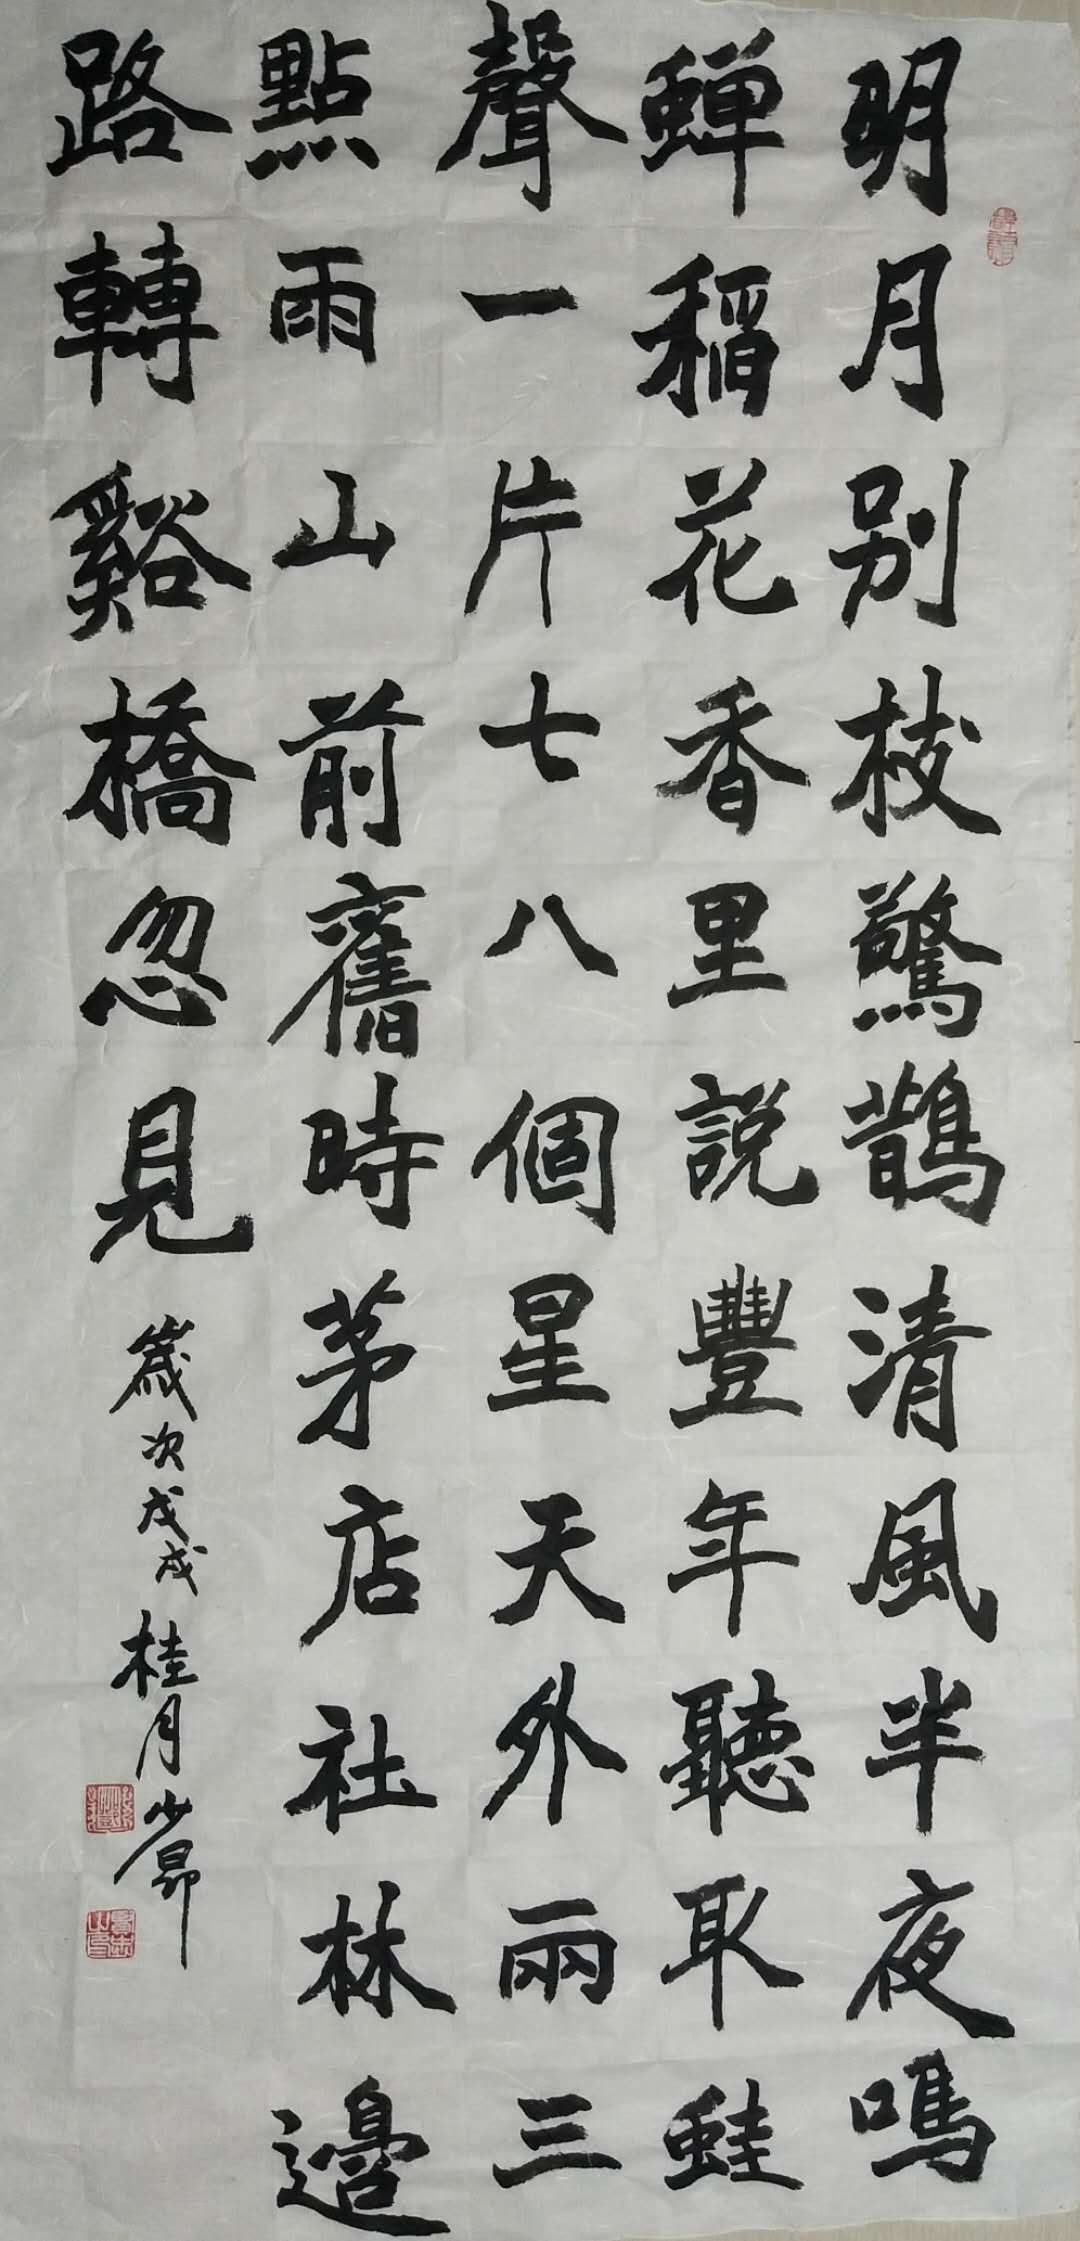 明月别枝驚鵲清風半夜鳴
蟬稻花香里説豐年聽取蛙
聲一片七八個星天外兩三
點雨山前舊時茅店社林邊
路轉谿橋忽見
歲次戊戌桂月少昂